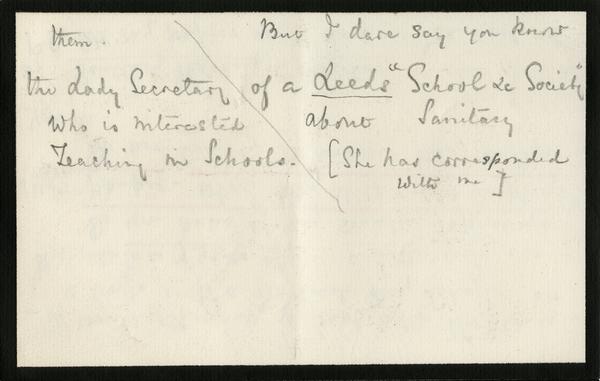 them. But I dare say you know
the Lady Secretary of a Leeds "School &c Society"
who is interested about Sanitary
Teaching in Schools. [She has corresponded
with me]